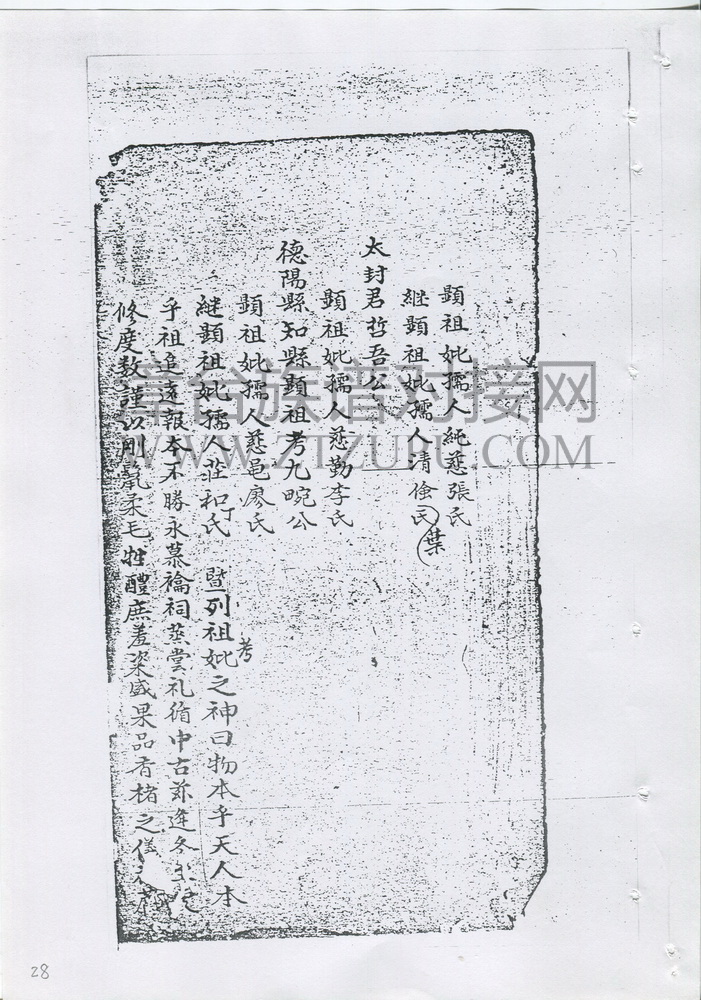 顯祖妣孺人純慈張氏
継顯祖妣孺人清儉氏(葉)
太封君哲吾公
顯祖妣孺人慈勤李氏
德陽縣知縣顯祖考九畹公
顯祖妣孺人慈邑廖氏
継顯祖妣孺人莊和丁氏 暨列祖考妣之神曰物本乎天人本
乎祖追遠報本不勝永慕禴祠蒸嘗礼循中古茲逢冬
修度数謹以剛鬣柔毛牲醴庶羞粢盛果品香楮之儀
章谷族谱对接网
WWW.ZTZUPU.COM
28